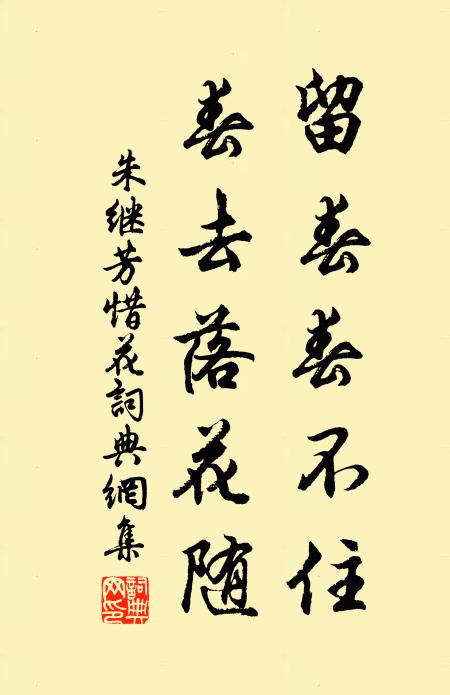 留春春不住
春去落花随
朱继芳惜花詞典網集
詞典
网印